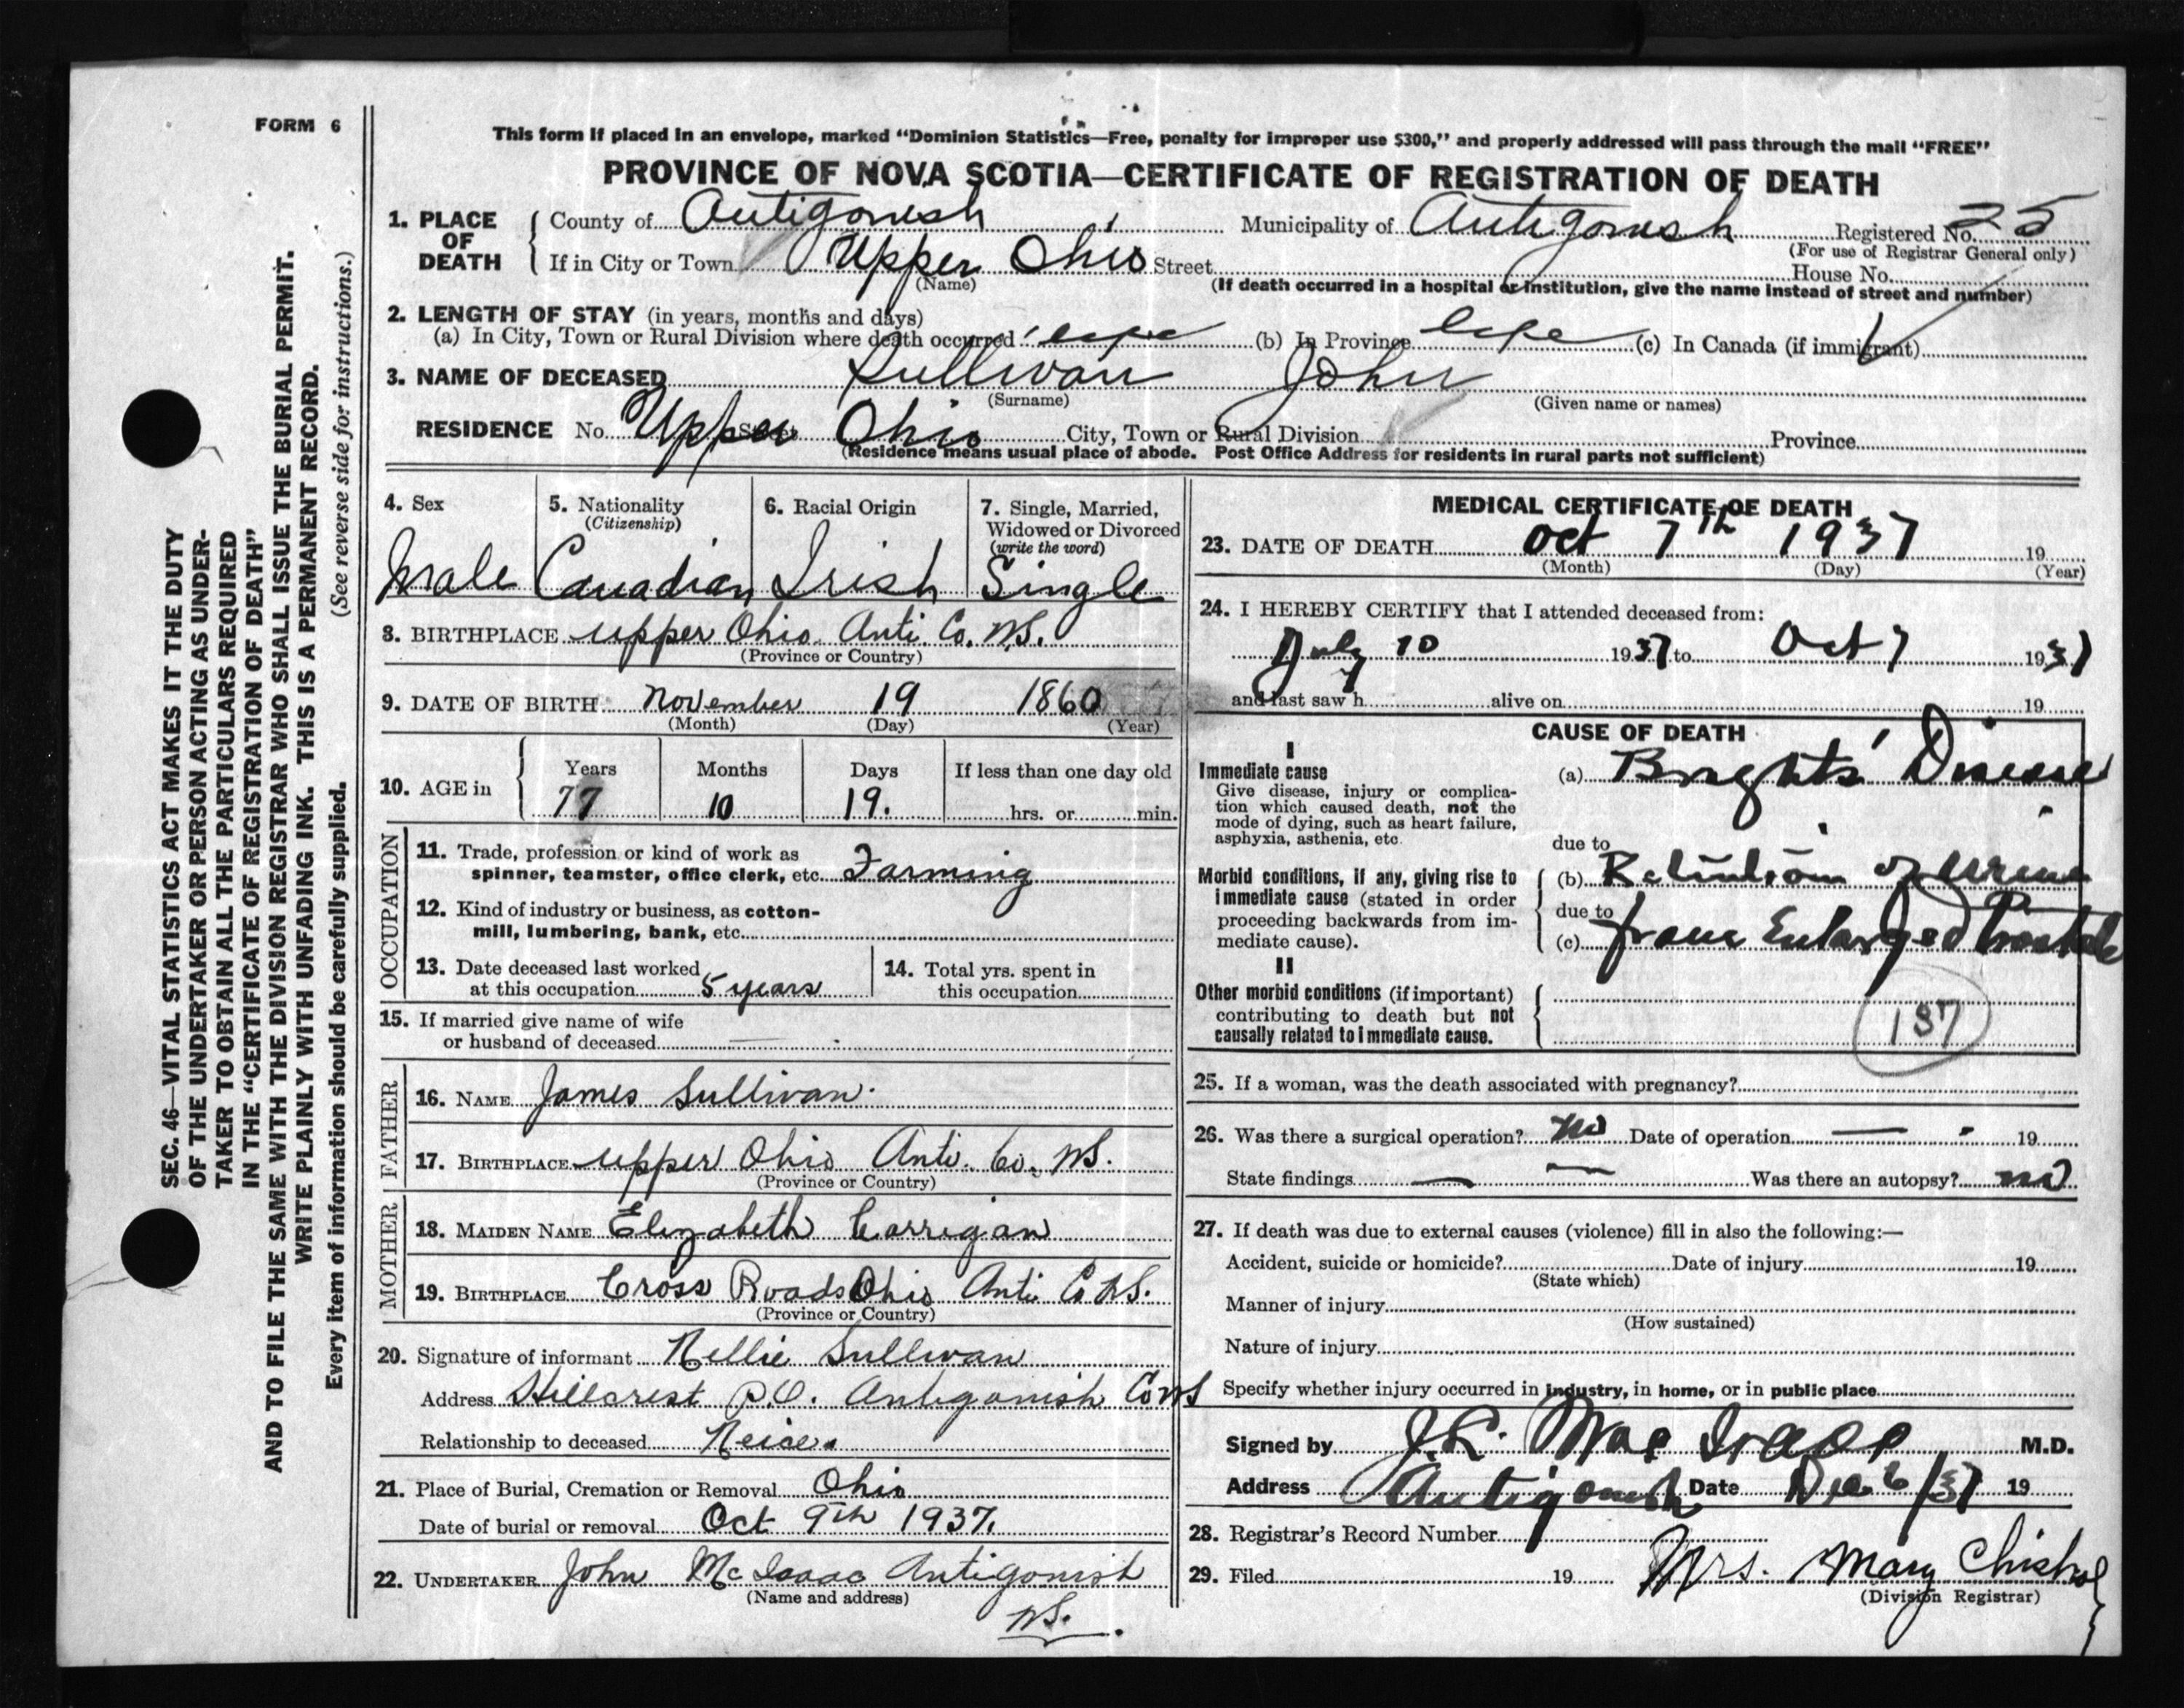 FORM 6
This form if placed in an envelope, marked "Dominion Statistics—Free, penalty for improper use $300," and properly addressed will pass through the mail "FREE"
PROVINCE OF NOVA SCOTIA—CERTIFICATE OF REGISTRATION OF DEATH
1. PLACE OF DEATH
County of Antigonish Municipality of Antigonish Registered No. 25
(For use of Registrar General only)
If in City or Town Upper Ohio Street House No.
(Name) (If death occurred in a hospital or institution, give the name instead of street and number)
2. LENGTH OF STAY (in years, months and days)
(a) In City, Town or Rural Division where death occurred life (b) In Province life (c) In Canada (if immigrant)
3. NAME OF DECEASED Sullivan John
(Surname) (Given name or names)
RESIDENCE No. Upper Street Ohio City, Town or Rural Division Province
(Residence means usual place of abode. Post Office Address for residents in rural parts not sufficient)
4. Sex Male
5. Nationality (Citizenship) Canadian
6. Racial Origin Irish
7. Single, Married, Widowed or Divorced (write the word) Single
8. BIRTHPLACE Upper Ohio Anti Co. N.S.
(Province or Country)
9. DATE OF BIRTH November 19 1860
(Month) (Day) (Year)
10. AGE in Years Months Days If less than one day old
77 10 19. hrs. or min.
OCCUPATION
11. Trade, profession or kind of work as
spinner, teamster, office clerk, etc. Farming
12. Kind of industry or business, as cotton-
mill, lumbering, bank, etc.
13. Date deceased last worked
at this occupation 5 years
14. Total yrs. spent in
this occupation
15. If married give name of wife
or husband of deceased —
FATHER
16. NAME James Sullivan
17. BIRTHPLACE Upper Ohio Anti. Co. N.S.
(Province or Country)
MOTHER
18. MAIDEN NAME Elizabeth Carrigan
19. BIRTHPLACE Cross Roads Ohio Anti Co N.S.
(Province or Country)
20. Signature of informant Nellie Sullivan
Address Hillcrest P.O. Antigonish Co NS
Relationship to deceased Neice
21. Place of Burial, Cremation or Removal Ohio
Date of burial or removal Oct 9th 1937.
22. UNDERTAKER John McIsaac Antigonish
(Name and address)
N.S.
MEDICAL CERTIFICATE OF DEATH
23. DATE OF DEATH Oct 7th 1937 19
(Month) (Day) (Year)
24. I HEREBY CERTIFY that I attended deceased from:
July 10 1937 to Oct 7 1937
and last saw h alive on 19
CAUSE OF DEATH
I
Immediate cause
Give disease, injury or complica-
tion which caused death, not the
mode of dying, such as heart failure,
asphyxia, asthenia, etc.
(a) Brights' Disease
due to
Morbid conditions, if any, giving rise to
immediate cause (stated in order
proceeding backwards from im-
mediate cause).
(b) Retention of Urine
due to
(c) from Enlarged Prostate
II
Other morbid conditions (if important)
contributing to death but not
causally related to immediate cause.
137
25. If a woman, was the death associated with pregnancy?
26. Was there a surgical operation? No Date of operation — 19
State findings — — Was there an autopsy? no
27. If death was due to external causes (violence) fill in also the following:—
Accident, suicide or homicide? Date of injury 19
(State which)
Manner of injury
(How sustained)
Nature of injury
Specify whether injury occurred in industry, in home, or in public place
Signed by J.L. MacIsaac M.D.
Address Antigonish Date Dec 6/37 19
28. Registrar's Record Number
29. Filed 19 Mrs. Mary Chisholm
(Division Registrar)
SEC. 46—VITAL STATISTICS ACT MAKES IT THE DUTY
OF THE UNDERTAKER OR PERSON ACTING AS UNDER-
TAKER TO OBTAIN ALL THE PARTICULARS REQUIRED
IN THE "CERTIFICATE OF REGISTRATION OF DEATH"
AND TO FILE THE SAME WITH THE DIVISION REGISTRAR WHO SHALL ISSUE THE BURIAL PERMIT.
WRITE PLAINLY WITH UNFADING INK. THIS IS A PERMANENT RECORD.
Every item of information should be carefully supplied. (See reverse side for instructions.)